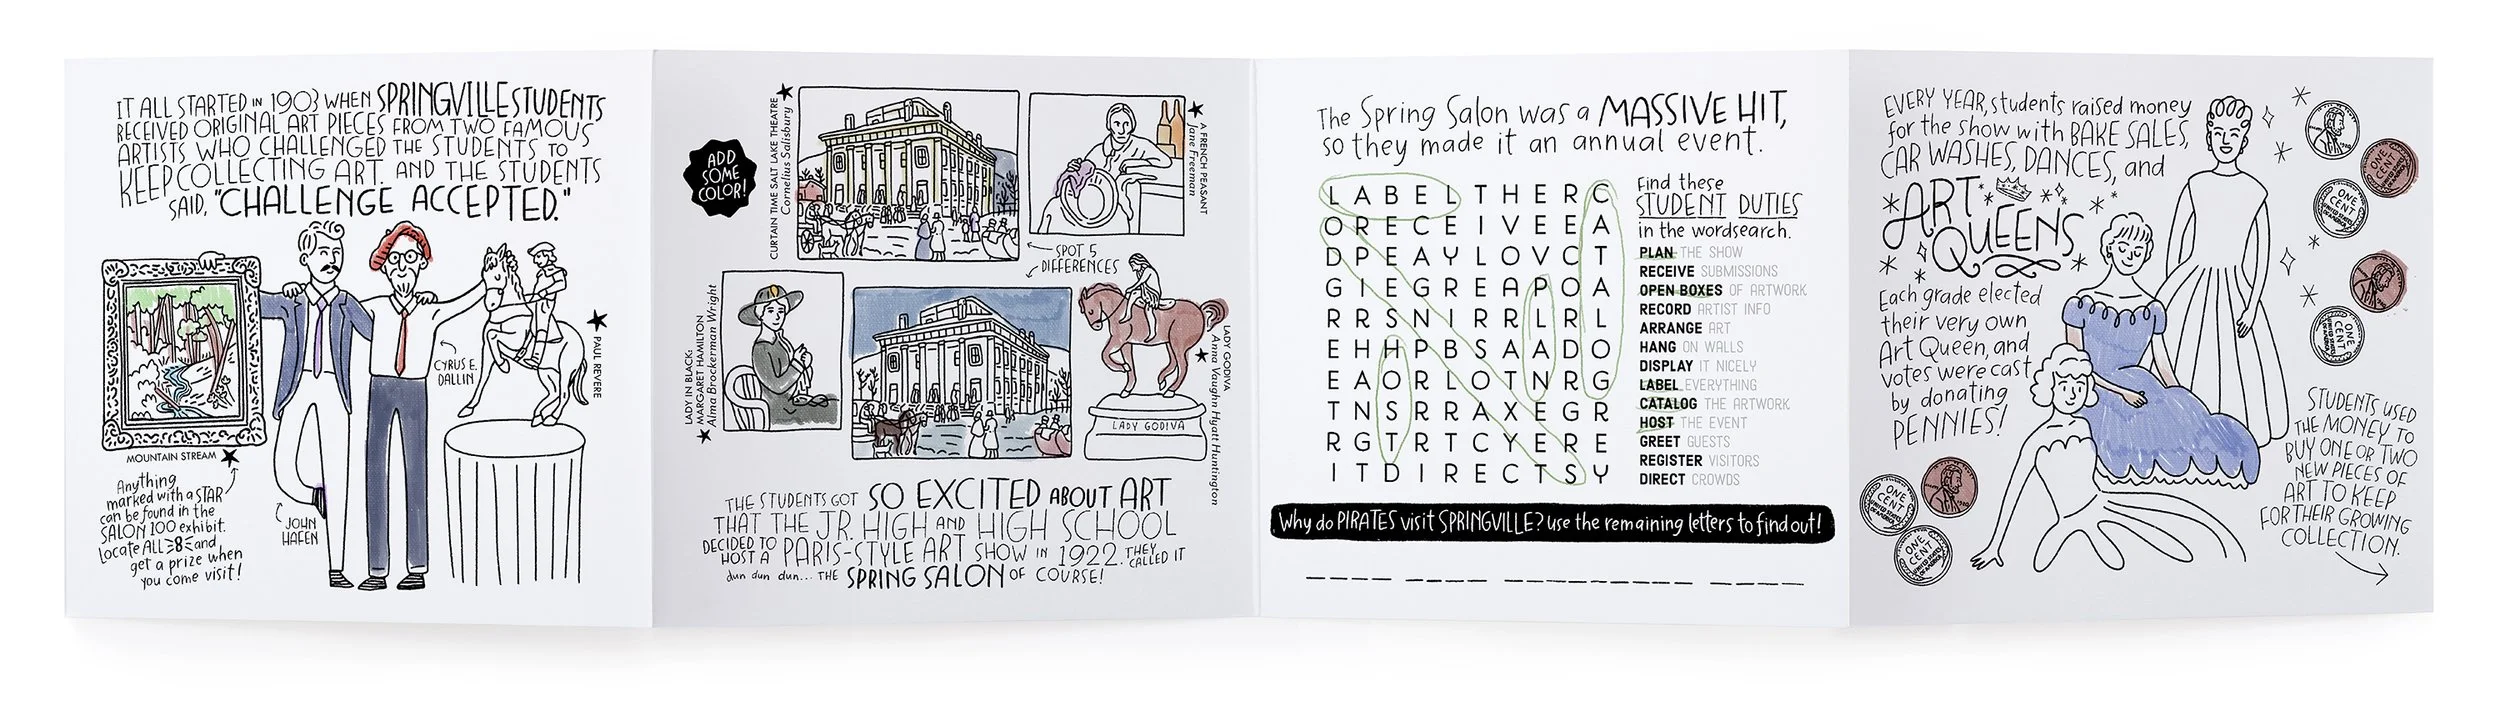 IT ALL STARTED IN 1903 WHEN SPRINGVILLE STUDENTS
RECEIVED ORIGINAL ART PIECES FROM TWO FAMOUS
ARTISTS WHO CHALLENGED THE STUDENTS TO
KEEP COLLECTING ART. AND THE STUDENTS
SAID, "CHALLENGE ACCEPTED."
MOUNTAIN STREAM
Anything
marked with a STAR
can be found in the
SALON 100 exhibit.
Locate ALL 8 and,
get a prize when
you come visit!
JOHN
HAFEN
CYRUS E.
DALLIN
PAUL REVERE
ADD
SOME
COLOR!
CURTAIN TIME SALT LAKE THEATRE
Cornelius Salisbury
A FRENCH PEASANT
Jane Freeman
SPOT 5
DIFFERENCES
LADY IN BLACK:
MARGARET HAMILTON
Alma Brockerman Wright
LADY GODIVA
LADY GODIVA
Anna Vaughn Hyatt Huntington
THE STUDENTS GOT SO EXCITED ABOUT ART
THAT THE JR. HIGH AND HIGH SCHOOL
DECIDED TO
HOST A PARIS-STYLE ART SHOW IN 1922. THEY
CALLED IT
dun dun dun... THE SPRING SALON OF COURSE!
The Spring Salon was a MASSIVE HIT,
so they made it an annual event.
L A B E L T H E R C
O R E C E I V E E A
D P E A Y L O V C T
G I E G R E A P O A
R R S N I R R L R L
E H H P B S A A D O
E A O R L O T N R G
T N S R R A X E G R
R G T R T C Y E R E
I T D I R E C T S Y
Find these
STUDENT DUTIES
in the wordsearch.
PLAN THE SHOW
RECEIVE SUBMISSIONS
OPEN BOXES OF ARTWORK
RECORD ARTIST INFO
ARRANGE ART
HANG ON WALLS
DISPLAY IT NICELY
LABEL EVERYTHING
CATALOG THE ARTWORK
HOST THE EVENT
GREET GUESTS
REGISTER VISITORS
DIRECT CROWDS
Why do PIRATES visit SPRINGVILLE? use the remaining letters to find out!
EVERY YEAR, students raised money
for the show with BAKE SALES,
CAR WASHES, DANCES, and
ART
QUEENS
Each grade elected
their very own
Art Queen, and
votes were cast
by donating
PENNIES!
ONE
CENT
UNITED STATES
OF AMERICA
ONE
CENT
UNITED STATES
OF AMERICA
ONE
CENT
UNITED STATES
OF AMERICA
ONE
CENT
UNITED STATES
OF AMERICA
ONE
CENT
UNITED STATES
OF AMERICA
STUDENTS USED
THE MONEY TO
BUY ONE OR TWO
NEW PIECES OF
ART TO KEEP
FOR THEIR GROWING
COLLECTION.